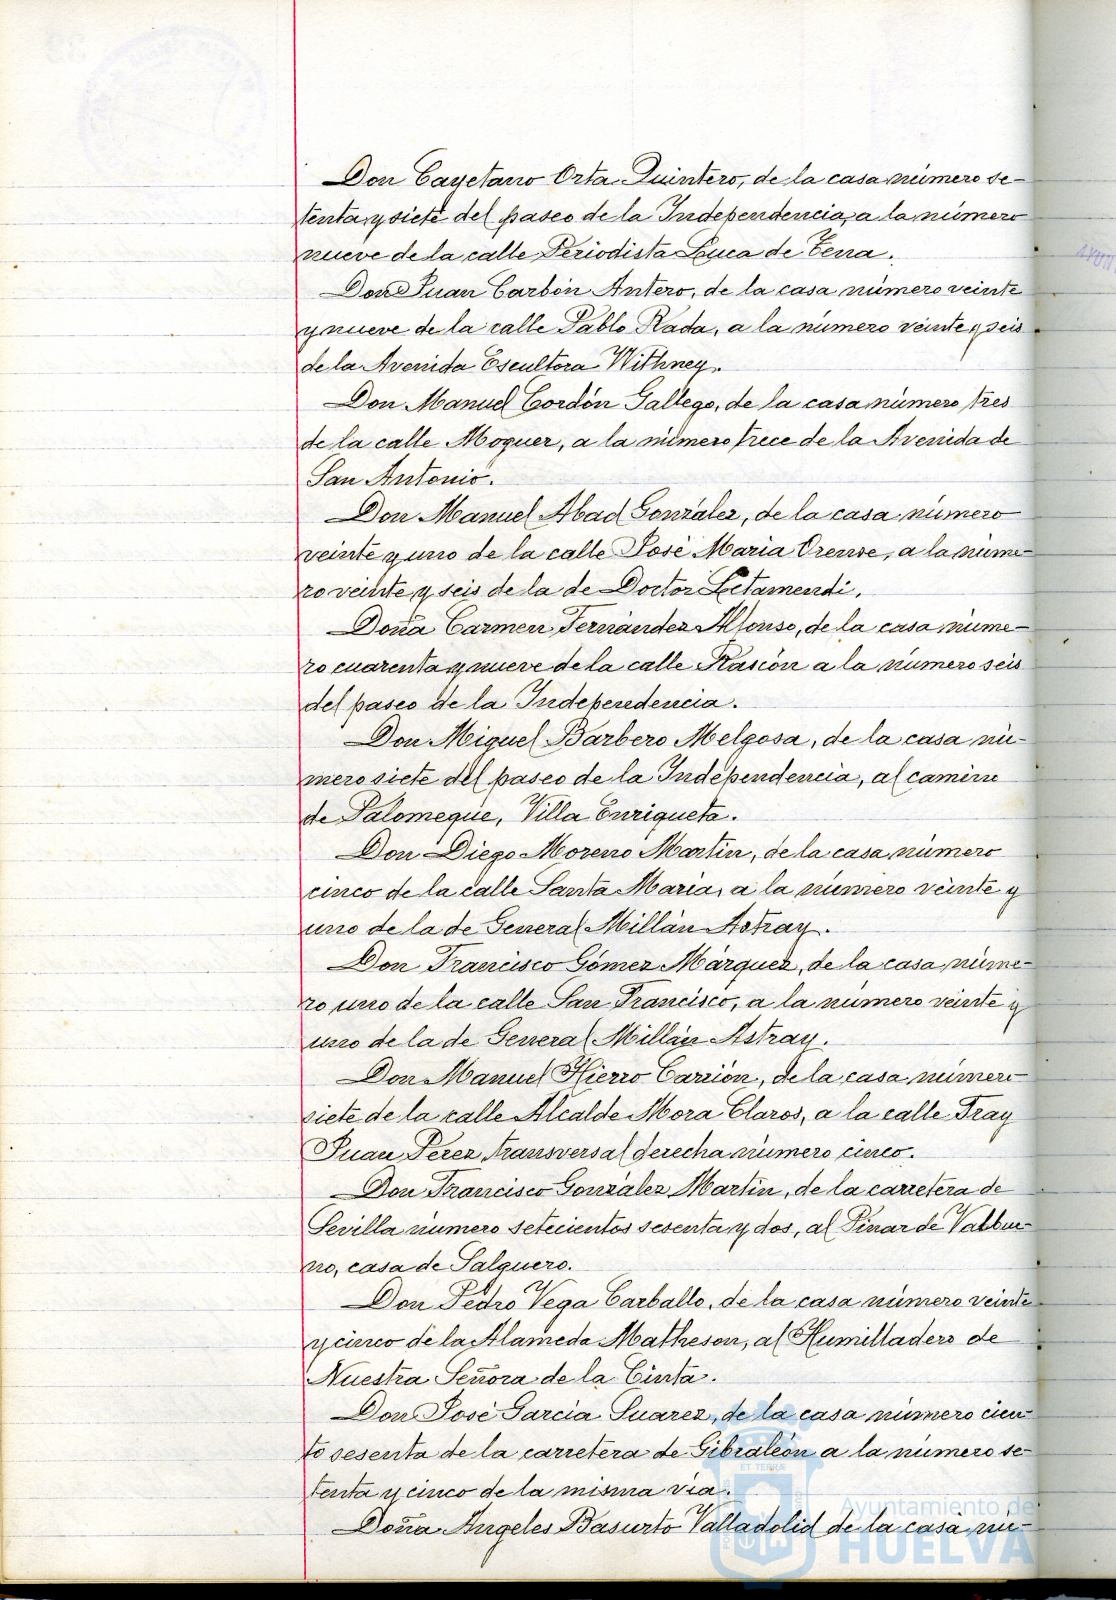 Don Cayetano Orta Quintero, de la casa número se-
tenta y siete del paseo de la Independencia, a la número
nueve de la calle Periodista Luca de Tena.
Don Juan Carbón Antero, de la casa número veinte
y nueve de la calle Pablo Rada, a la número veinte y seis
de la Avenida Escultora Withney.
Don Manuel Cordón Gallego, de la casa número tres
de la calle Moguer, a la número trece de la Avenida de
San Antonio.
Don Manuel Abad González, de la casa número
veinte y uno de la calle José Maria Orense, a la núme-
ro veinte y seis de la de Doctor Letamendi.
Doña Carmen Fernández Alfonso, de la casa núme-
ro cuarenta y nueve de la calle Rascón a la número seis
del paseo de la Independencia.
Don Miguel Barbero Melgosa, de la casa nú-
mero siete del paseo de la Independencia, al camino
de Palomeque, Villa Enriqueta.
Don Diego Moreno Martin, de la casa número
cinco de la calle Santa Maria, a la número veinte y
uno de la de General Millán Astray.
Don Francisco Gómez Márquez, de la casa núme-
ro uno de la calle San Francisco, a la número veinte y
uno de la de General Millán Astray.
Don Manuel Hierro Carrión, de la casa número
siete de la calle Alcalde Mora Claros, a la calle Fray
Juan Pérez transversal derecha número cinco.
Don Francisco González Martin, de la carretera de
Sevilla número setecientos sesenta y dos, al Pinar de Valbue-
no, casa de Salguero.
Don Pedro Vega Carballo, de la casa número veinte
y cinco de la Alameda Matheson, al Humilladero de
Nuestra Señora de la Cinta.
Don José Garcia Suarez, de la casa número cien-
to sesenta de la carretera de Gibraleón a la número se-
tenta y cinco de la misma via.
Doña Angeles Basurto Valladolid de la casa nú-
Ayuntamiento de
HUELVA